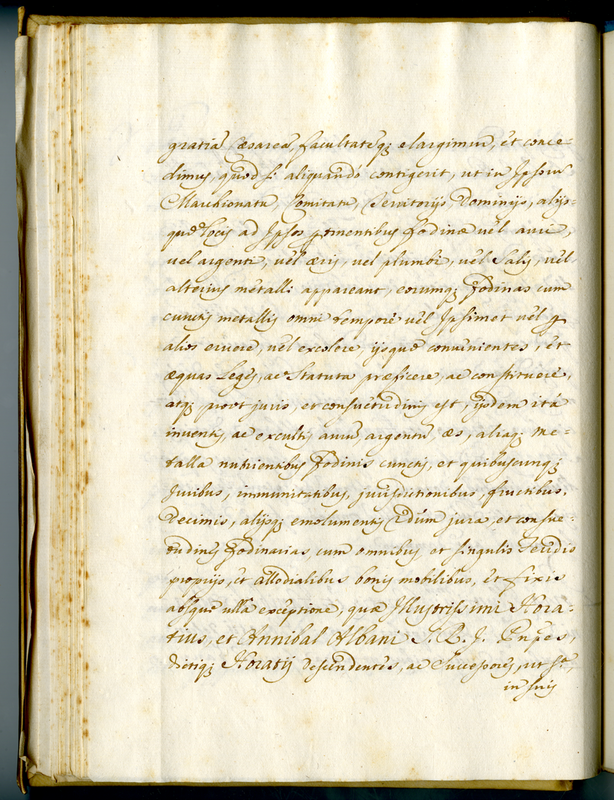 gratia Cæsarea, facultateq; elargimur, et conce-
dimus, quod si aliquando contigerit, ut in Ipsorum
Marchionatu, Comitatu, Territorijs Dominijs, alijs-
que locis ad Ipsos ptinentibus fodinæ vel auri,
vel argenti, vel æris, vel plumbi, vel Salis, vel
alterius metalli appareant, eorumq; fodinas cum
cunctis metallis omni tempore vel Ipsimet vel p
alios eruere, vel excolere, ijsque convenientes, et
æquas Leges, ac Statuta præficere, ac constituere,
atq; prout juris, et consuetudinis est, ijsdem ita
inventis, ac excultis aurum, argentum, æs, aliaq; me-
talla nutrientibus fodinis cunctis, et quibuscunq;
Juribus, immunitatibus, jurisdictionibus, fructibus,
Decimis, alijsq; emolumentis sdum jura, et consue-
tudines fodinarias cum omnibus et singulis feudis
proprijs, et allodialibus bonis mobilibus, et fixis
absque ulla exceptione, quæ Illustrissimi Hora-
tius, et Annibal Albani S. R. J. Pnpes,
dictiq; Horatij descendentes, ac Successores, ut st,
in suis